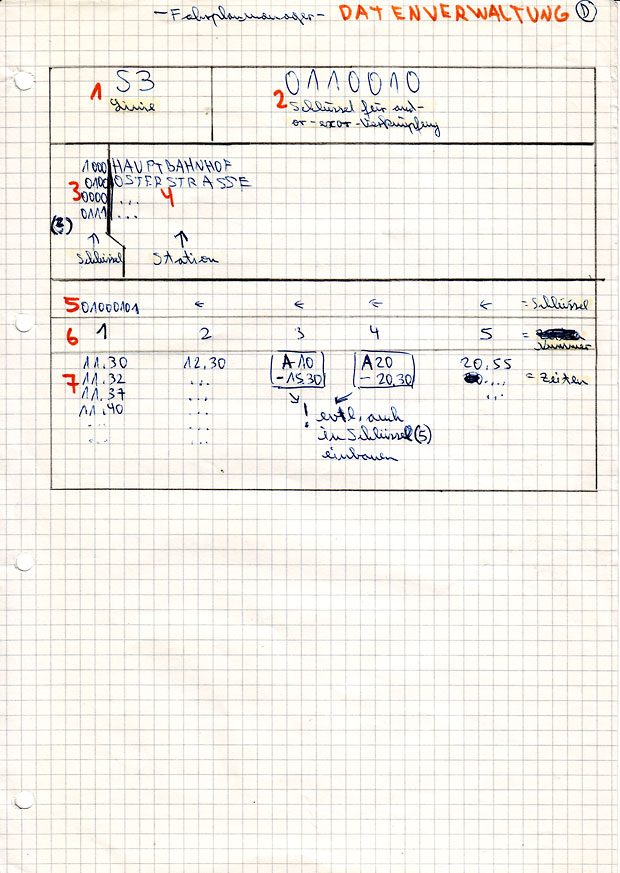 - Fahrplanmanager - DATENVERWALTUNG D
1 S3
Linie
0110010
2 Schlüssel für and-
or-exor-Verknüpfung
1000 HAUPTBAHNHOF
0100 OSTERSTRASSE
3 0000 ... 4
0111 ...
(2)
↑ ↑
Schlüssel Station
5 01000101 ← ← ← ← = Schlüssel
6 1 2 3 4 5 = Nummer
7 11.30 12.30 A10 A20 20.55 = Zeiten
11.32 ... -15.30 -20.30 ...
11.37 ... ...
11.40 ...
... ...
... ...
! evtl. auch
in Schlüssel (5)
einbauen